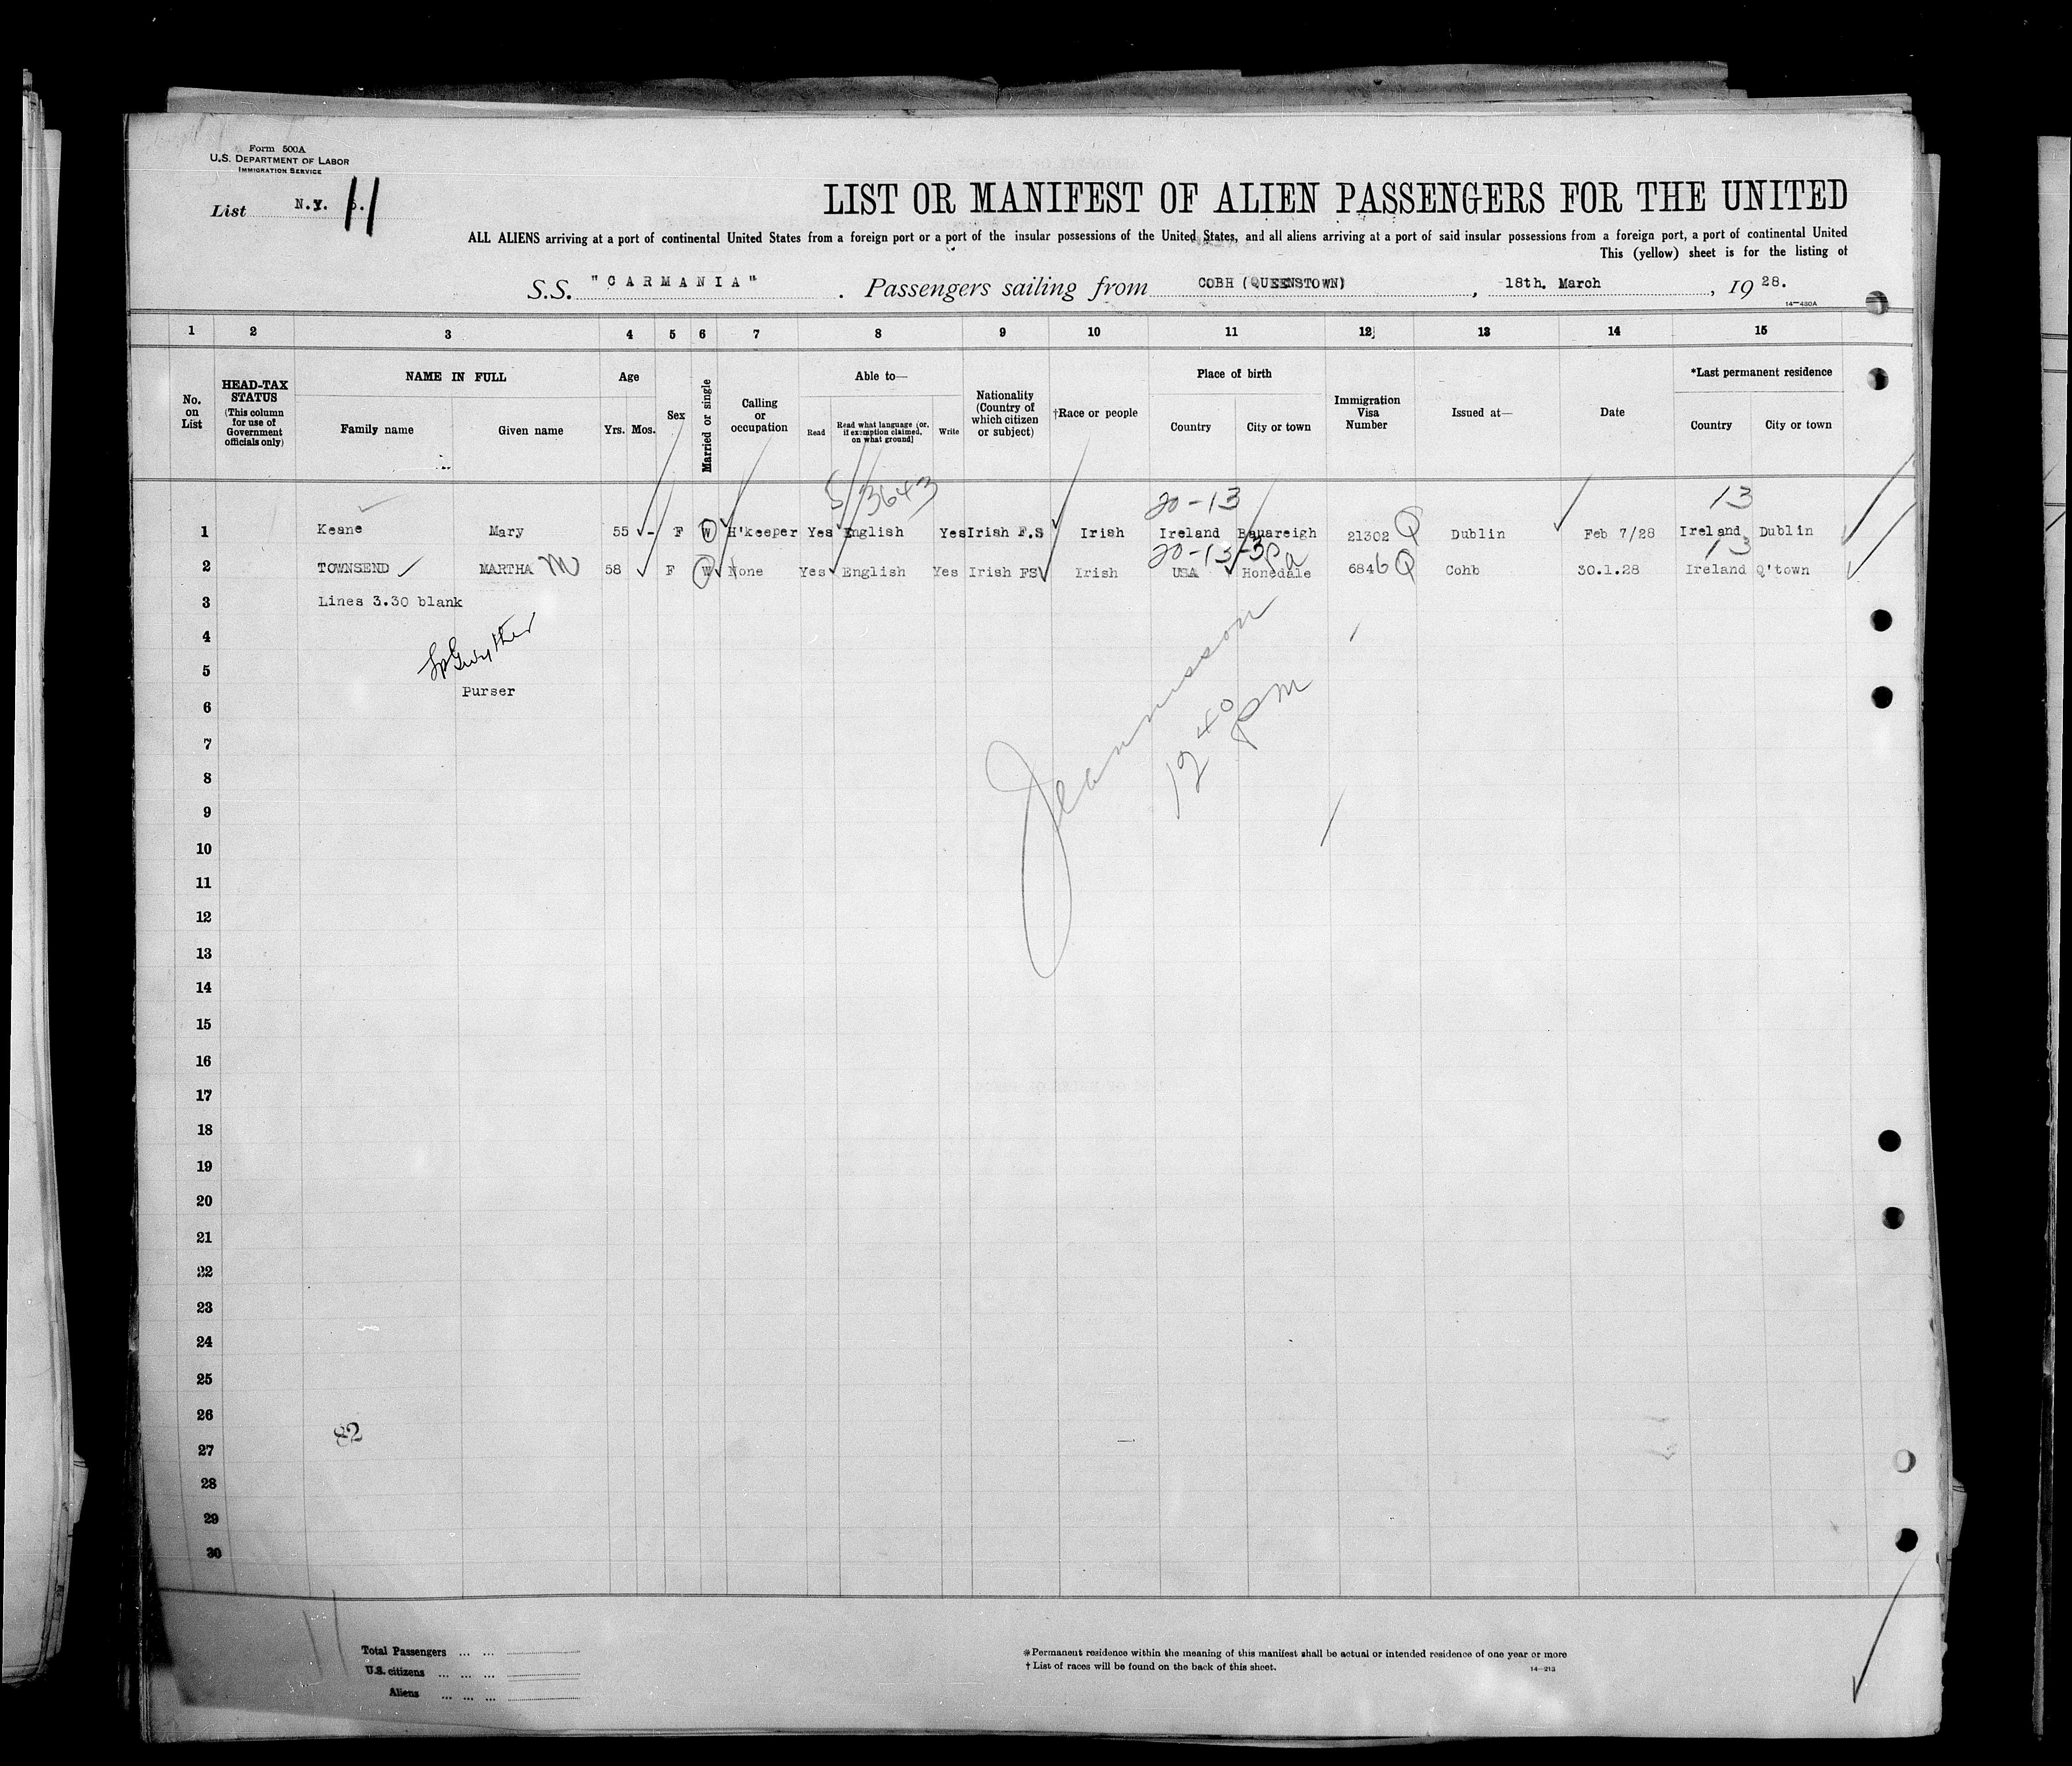 Form 500A
U.S. DEPARTMENT OF LABOR
IMMIGRATION SERVICE
List N.Y. 11
LIST OR MANIFEST OF ALIEN PASSENGERS FOR THE UNITED
ALL ALIENS arriving at a port of continental United States from a foreign port or a port of the insular possessions of the United States, and all aliens arriving at a port of said insular possessions from a foreign port, a port of continental United
This (yellow) sheet is for the listing of
S.S. "CARMANIA". Passengers sailing from COBH (QUEENSTOWN), 18th. March, 19 28.
14-430A
1 2 3 4 5 6 7 8 9 10 11 12 13 14 15
No. on List
HEAD-TAX STATUS (This column for use of Government officials only)
NAME IN FULL
Family name Given name
Age
Yrs. Mos.
Sex
Married or single
Calling or occupation
Able to—
Read Read what language (or, if exemption claimed, on what ground) Write
Nationality (Country of which citizen or subject)
†Race or people
Place of birth
Country City or town
Immigration Visa Number
Issued at—
Date
*Last permanent residence
Country City or town
5/3643 20-13 13
1 Keane Mary 55 - F W H'keeper Yes English Yes Irish F.S Irish Ireland Banareigh 21302 Q Dublin Feb 7/28 Ireland Dublin
20-13-3 Pa 13
2 TOWNSEND MARTHA M 58 F W None Yes English Yes Irish FS Irish USA Honedale 6846 Q Cohb 30.1.28 Ireland Q'town
3 Lines 3.30 blank
4
5
Purser
6
7
12 40 pm
8
9
10
11
12
13
14
15
16
17
18
19
20
21
22
23
24
25
26
82
27
28
29
30
Total Passengers ... ...
U.S. citizens ... ... ...
Aliens ... ... ...
*Permanent residence within the meaning of this manifest shall be actual or intended residence of one year or more
† List of races will be found on the back of this sheet.
14-213